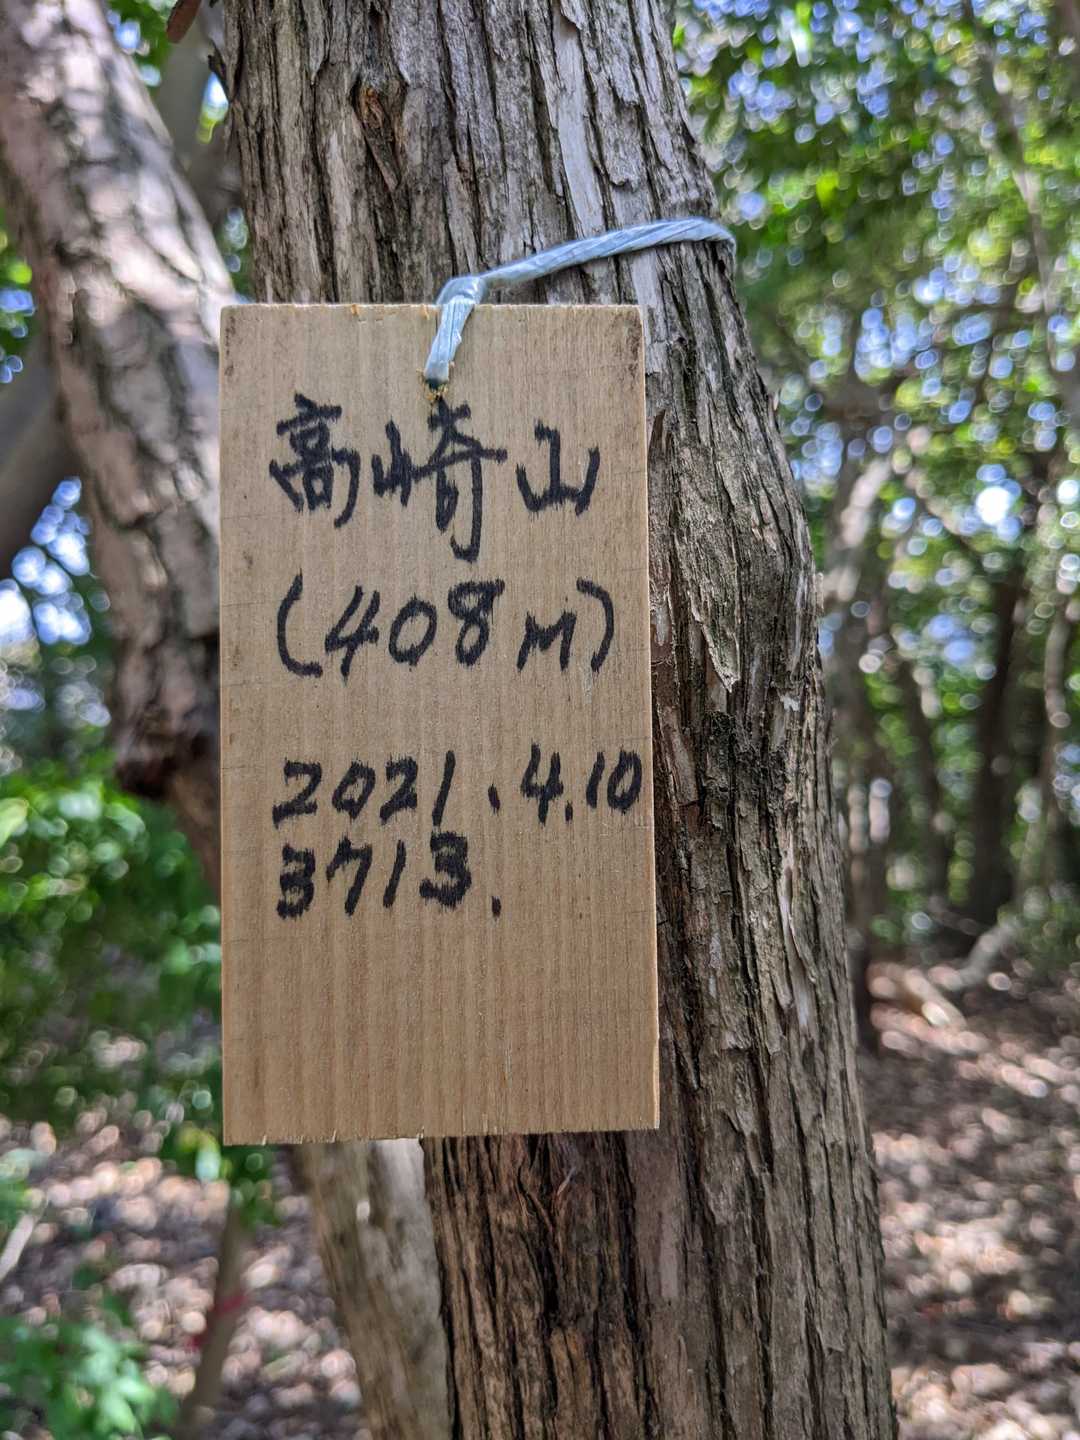 高崎山
(408M)
2021.4.10
3713.